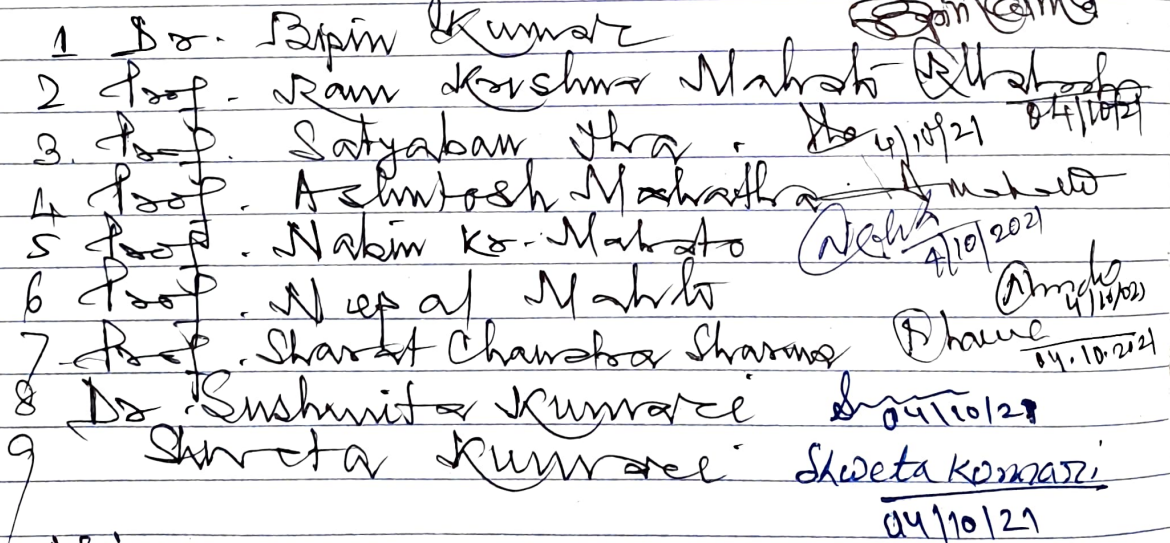 1 Dr. Bipin Kumar
2 Prof. Ram Krishna Mahato 04/10/21
3. Prof. Satyaban Jha. 4/10/21
4 Prof. Ashutosh Mahatha A Mahato
5 Prof. Nabin Kr. Mahato 4/10/2021
6 Prof. Nepal Mahto 4/10/021
7 Prof. Sharat Chandra Sharma 04.10.2021
8 Dr. Sushmita Kumari 04/10/21
9 Shweta Kumari Shweta Kumari
04/10/21